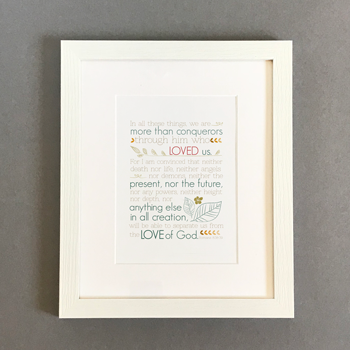 In all these things, we are
more than conquerors
through him who
LOVED us.
For I am convinced that neither
death nor life, neither angels
nor demons, neither the
present, nor the future,
nor any powers, neither height
nor depth, nor
anything else
in all creation,
will be able to separate us from
the LOVE of God.